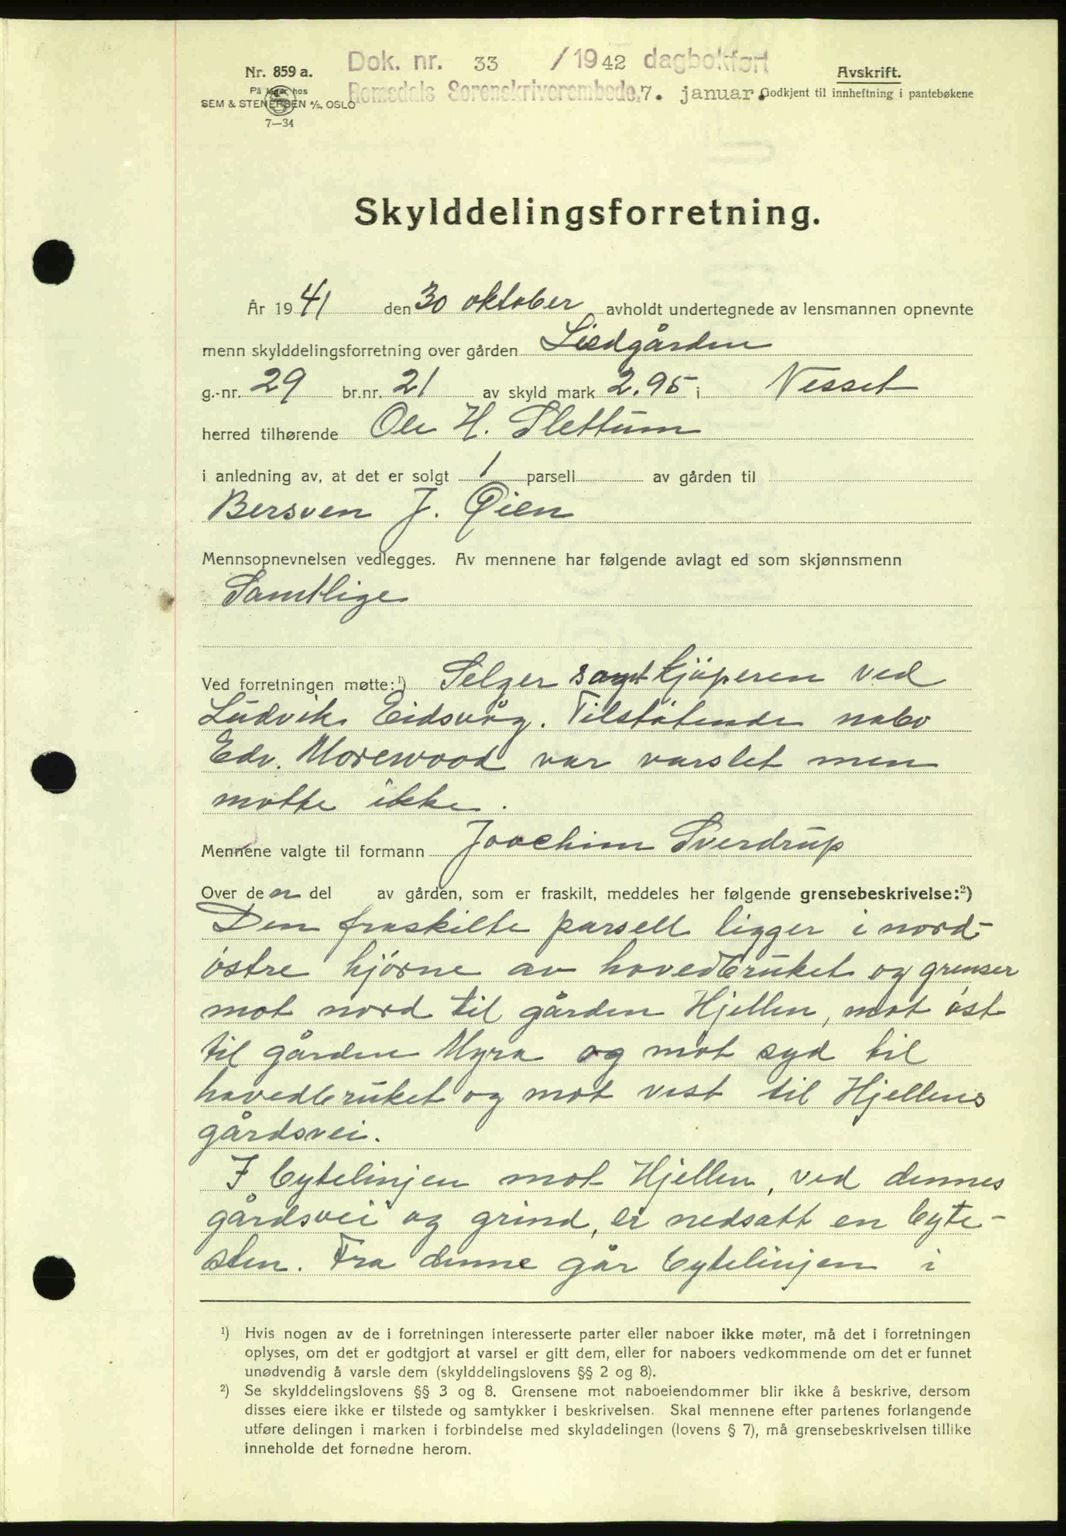 Dok. nr. 33 /1942 dagbokført
Nr. 859 a. Avskrift.
På lager hos Romsdals Sorenskriverembede, 7. januar. Godkjent til innheftning i pantebøkene
SEM & STENERSEN A/S, OSLO
7—34
Skylddelingsforretning.
År 1941 den 30 oktober avholdt undertegnede av lensmannen opnevnte
menn skylddelingsforretning over gården
g.-nr. 29 br.nr. 21 av skyld mark 2.95 i Nesset
herred tilhørende Ole H. Slettum
i anledning av, at det er solgt 1 parsell av gården til
Bersven J. Øien
Mennsopnevnelsen vedlegges. Av mennene har følgende avlagt ed som skjønnsmenn
Samtlige
Ved forretningen møtte:¹) Selger samt kjøperen ved
Ludvik Eidsvåg. Tilstøtende nabo
Edv. Morewood var varslet men
møtte ikke.
Mennene valgte til formann Joachim Sverdrup
Over den del av gården, som er fraskilt, meddeles her følgende grensebeskrivelse:²)
Den fraskilte parsell ligger i nord-
østre hjørne av hovedbruket og grenser
mot nord til gården Hjellen, mot øst
til gården Myra og mot syd til
hovedbruket og mot vest til Hjellens
gårdsvei.
I bytelinjen mot Hjellen, ved dennes
gårdsvei og grind, er nedsatt en byte-
sten. Fra denne går bytelinjen i
¹) Hvis nogen av de i forretningen interesserte parter eller naboer ikke møter, må det i forretningen
oplyses, om det er godtgjort at varsel er gitt dem, eller for naboers vedkommende om det er funnet
unødvendig å varsle dem (skylddelingslovens §§ 2 og 8).
²) Se skylddelingslovens §§ 3 og 8. Grensene mot naboeiendommer blir ikke å beskrive, dersom
disses eiere ikke er tilstede og samtykker i beskrivelsen. Skal mennene efter partenes forlangende
utføre delingen i marken i forbindelse med skylddelingen (lovens § 7), må grensebeskrivelsen tillike
inneholde det fornødne herom.